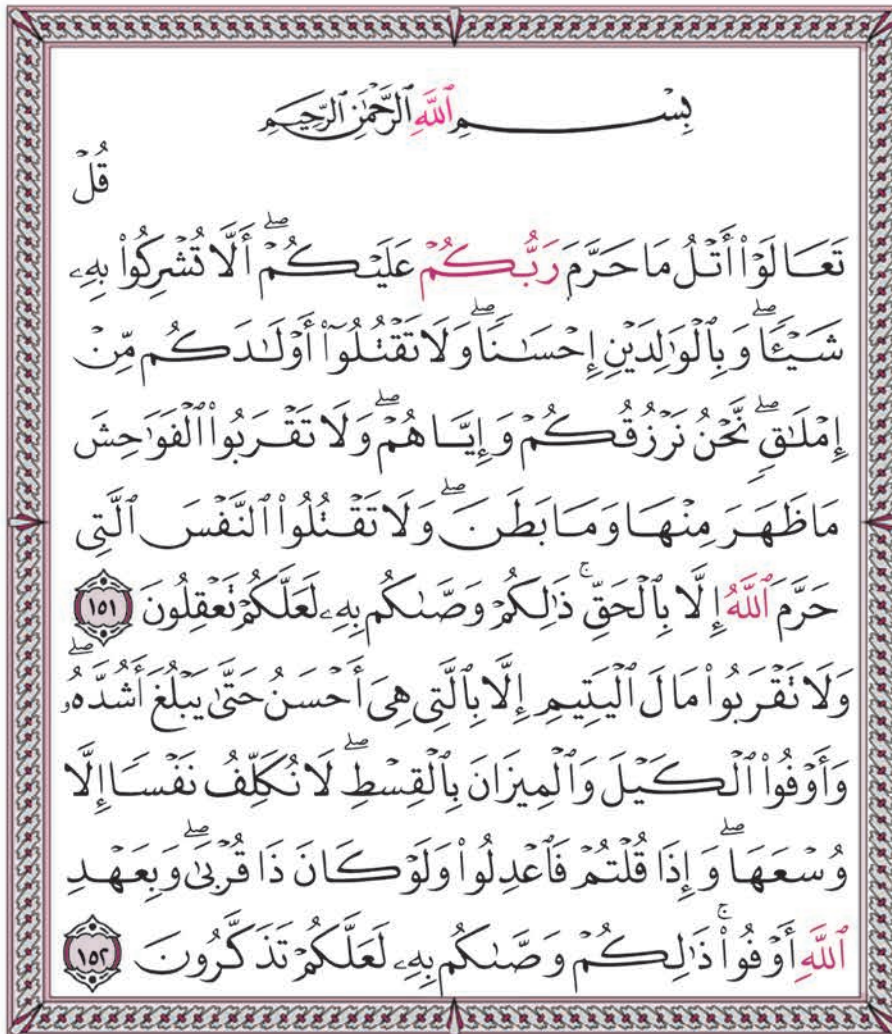 بِسْمِ ٱللَّهِ ٱلرَّحْمَٰنِ ٱلرَّحِيمِ
قُلْ
تَعَالَوْا۟ أَتْلُ مَا حَرَّمَ رَبُّكُمْ عَلَيْكُمْ ۖ أَلَّا تُشْرِكُوا۟ بِهِۦ
شَيْـًٔا ۖ وَبِٱلْوَٰلِدَيْنِ إِحْسَـٰنًا ۖ وَلَا تَقْتُلُوٓا۟ أَوْلَـٰدَكُم مِّنْ
إِمْلَـٰقٍ ۖ نَّحْنُ نَرْزُقُكُمْ وَإِيَّاهُمْ ۖ وَلَا تَقْرَبُوا۟ ٱلْفَوَٰحِشَ
مَا ظَهَرَ مِنْهَا وَمَا بَطَنَ ۖ وَلَا تَقْتُلُوا۟ ٱلنَّفْسَ ٱلَّتِى
حَرَّمَ ٱللَّهُ إِلَّا بِٱلْحَقِّ ۚ ذَٰلِكُمْ وَصَّىٰكُم بِهِۦ لَعَلَّكُمْ تَعْقِلُونَ ١٥١
وَلَا تَقْرَبُوا۟ مَالَ ٱلْيَتِيمِ إِلَّا بِٱلَّتِى هِىَ أَحْسَنُ حَتَّىٰ يَبْلُغَ أَشُدَّهُۥ ۖ
وَأَوْفُوا۟ ٱلْكَيْلَ وَٱلْمِيزَانَ بِٱلْقِسْطِ ۖ لَا نُكَلِّفُ نَفْسًا إِلَّا
وُسْعَهَا ۖ وَإِذَا قُلْتُمْ فَٱعْدِلُوا۟ وَلَوْ كَانَ ذَا قُرْبَىٰ ۖ وَبِعَهْدِ
ٱللَّهِ أَوْفُوا۟ ۚ ذَٰلِكُمْ وَصَّىٰكُم بِهِۦ لَعَلَّكُمْ تَذَكَّرُونَ ١٥٢